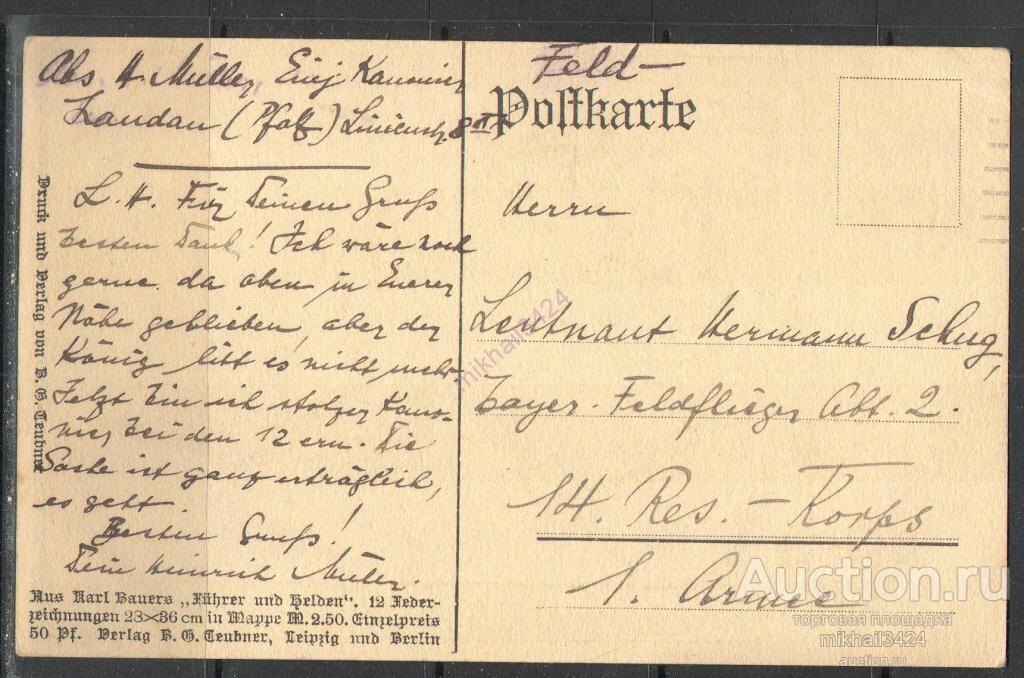 Abs H. Müller, Einj Kanonier
Landau (Pfalz) Linienstr. 8 II
L. H. Für Deinen Gruß
besten Dank! Ich wäre noch
gerne da oben in Eurer
Nähe geblieben, aber der
König litt es nicht mehr.
Jetzt bin ich stolzer Kano-
nier bei den 12 ern. Die
Sache ist ganz erträglich,
es geht.
Besten Gruß!
Dein Heinrich Müller.
Aus Karl Bauers „Führer und Helden". 12 Feder-
zeichnungen 28×36 cm in Mappe M. 2.50. Einzelpreis
50 Pf. Verlag B. G. Teubner, Leipzig und Berlin
Druck und Verlag von B. G. Teubner
Feld-
Postkarte
Herrn
Leutnant Hermann Schug,
bayer. Feldflieger Abt. 2.
14. Res. - Korps
1. Armee
mikhail3424
Auction.ru
торговая площадка
mikhail3424
auction.ru